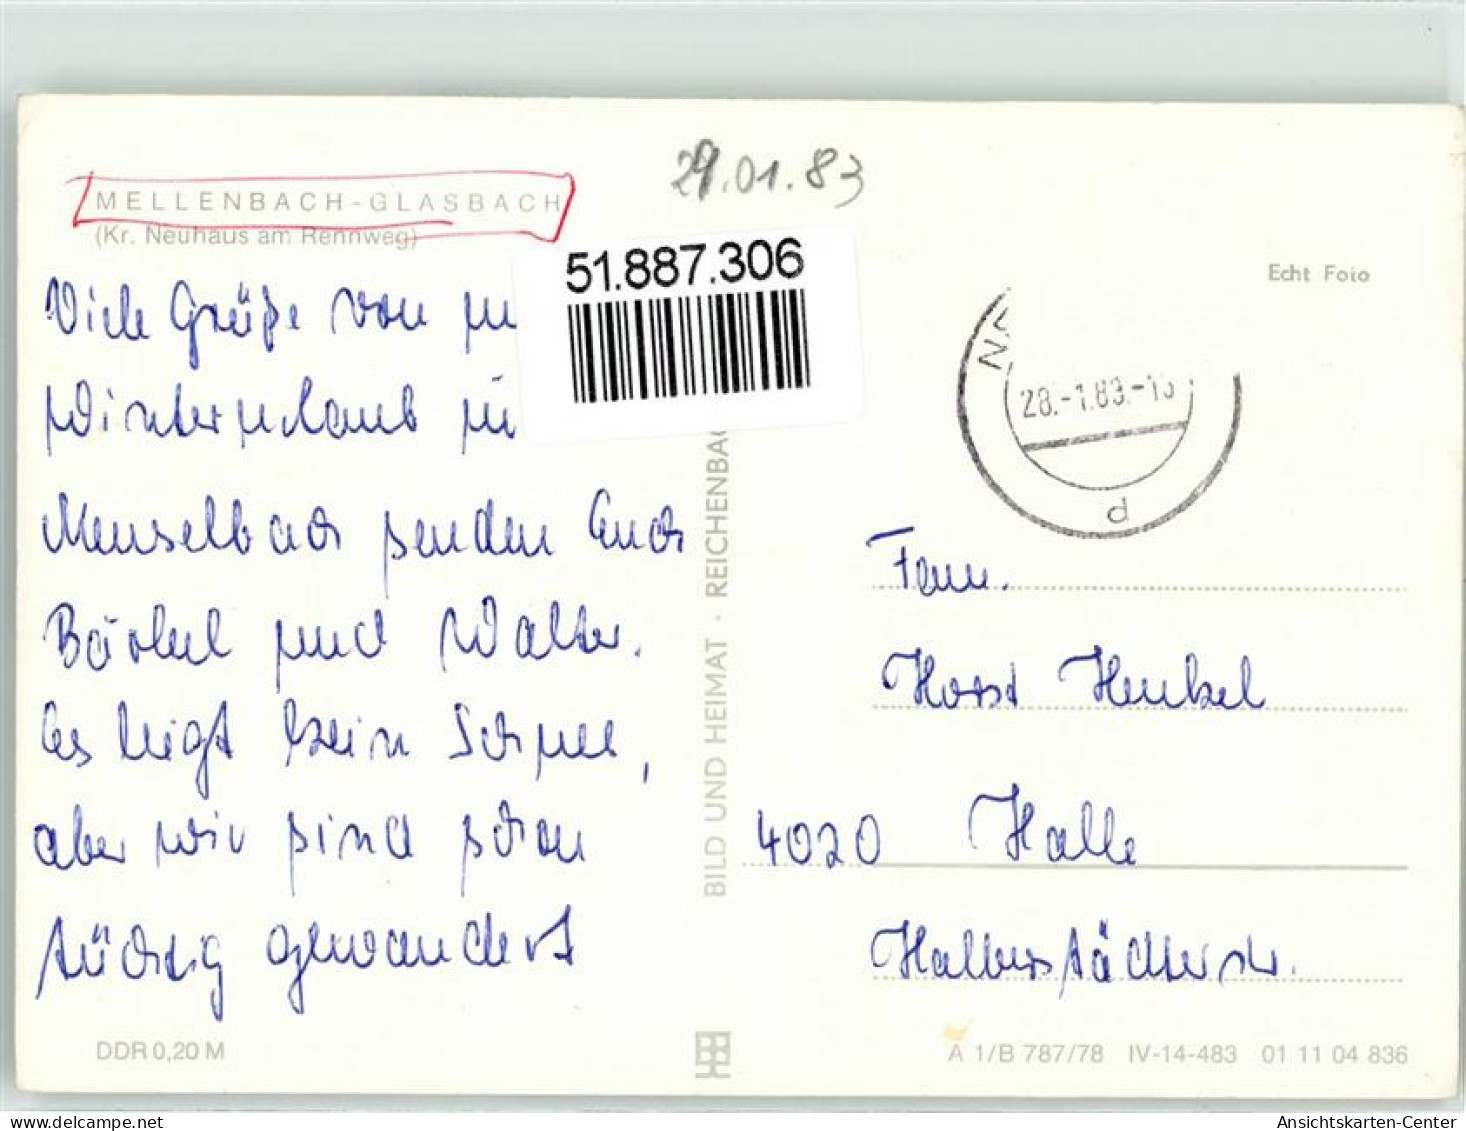 MELLENBACH-GLASBACH
(Kr. Neuhaus am Rennweg)
29.01.83
51.887.306
Echt Foto
28.-1.83.-
d
Viele Grüße von
Winterurlaub in
Meuselbach senden Euch
Bärbel und Walter.
Es liegt kein Schnee,
aber wir sind schon
tüchtig gewandert
BILD UND HEIMAT · REICHENBAC
Fam.
Horst Henkel
4020 Halle
Halberstädterstr.
DDR 0,20 M
A 1/B 787/78 IV-14-483 01 11 04 836
Ansichtskarten-Center